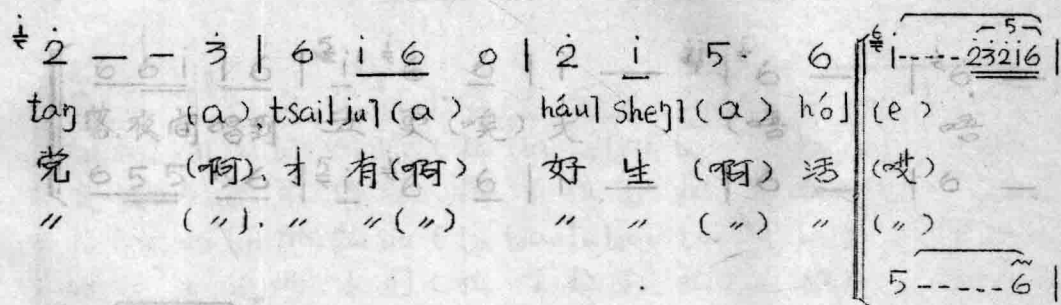 i 2̇ — — 3̇ | 6 i̇ 6 0 | 2̇ i̇ 5· 6 ‖ 6 i̇ - - - - 2̇3̇2̇i̇6 5 |
taŋ (a), tsai˩ju˥(a) háu˥ sheŋ˥(a) hó˩ (e)
党 (啊), 才 有(啊) 好 生 (啊) 活 (哎)
〃 (〃), 〃 〃(〃) 〃 〃 (〃) 〃 (〃)
5 - - - - - 6 |